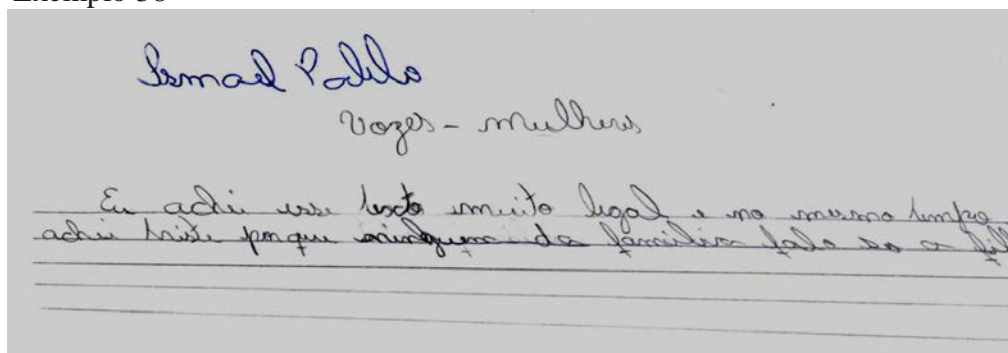 Ismael Pablo
Vozes - mulheres
Eu achei esse texto muito legal e no mesmo tempo
achei triste porque ninguem da familia falo so a